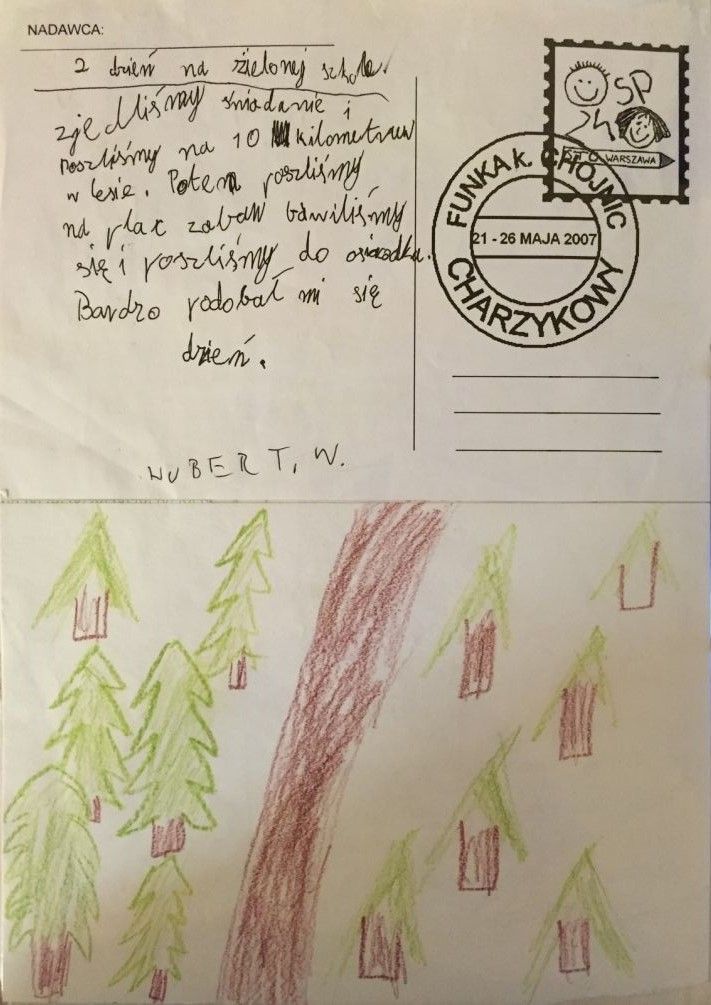 NADAWCA:
2 dzień na zielonej szkole.
zjedliśmy śniadanie i
poszliśmy na 10 kilometrów
w lesie. Potem poszliśmy
na plac zabaw bawiliśmy
się i poszliśmy do ośrodka.
Bardzo podobał mi się
dzień.
HUBERT, W.
SP
24
STO WARSZAWA
FUNKA k. CHOJNIC
21 - 26 MAJA 2007
CHARZYKOWY